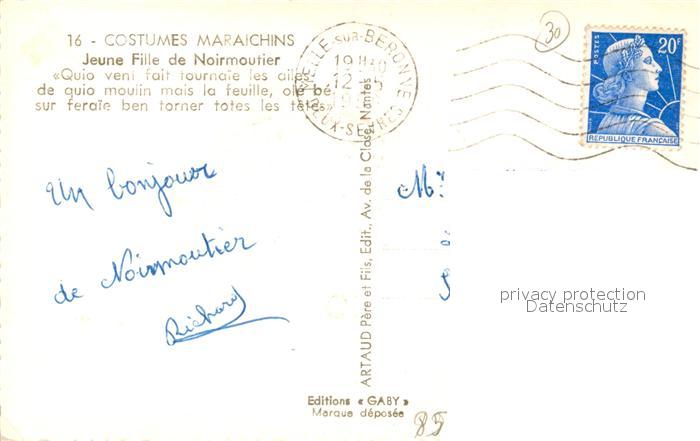 16 - COSTUMES MARAICHINS
Jeune Fille de Noirmoutier
«Quio veni fait tournaïe les ailes
de quio moulin mais la feuille, olé bé
sur feraïe ben torner totes les têtes»
CELLE-SUR-BERONNE
19 H30
DEUX-SEVRES
30
POSTES
20F
REPUBLIQUE FRANÇAISE
Un bonjour
de Noirmoutier
Richard
ARTAUD Père et Fils, Edit., Av. de la Close, Nantes
Mr
privacy protection
Datenschutz
Editions « GABY »
Marque déposée
85